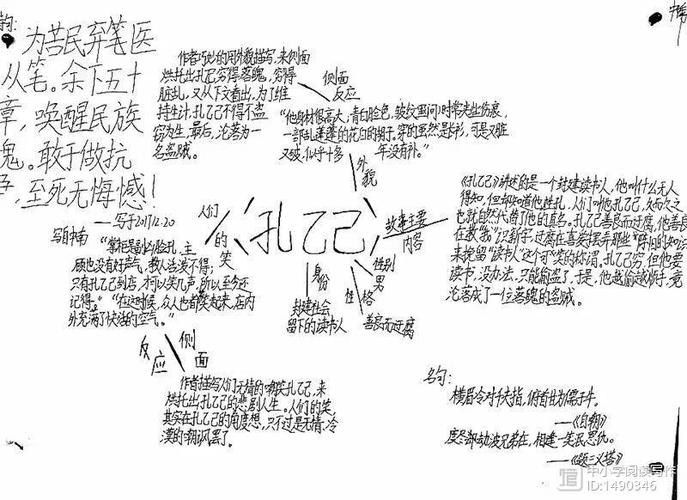 为苦民弃笔医
从笔。余下五十
章,唤醒民族
魂。敢于做抗
争,至死无悔憾!
——写于2017.12.20
作者巧妙的用外貌描写,来侧面
烘托出孔乙己穷得落魄,穷得
脏乱,又从下文看出,为了维
持生计,孔乙己不得不盗
窃为生,最后,沦落为一
名盗贼。
侧面
反应
"他身材很高大,青白脸色,皱纹里间时常夹些伤痕,
一部乱蓬蓬的花白的胡子。穿的虽然是长衫,可是又脏
又破,似乎十多年没有补。"
外貌
孔乙己
人们的笑
"掌柜是副凶脸孔,主
顾也没有好声气,教人活泼不得;
只有孔乙己到店,才可以笑几声,所以至今还
记得。""在这时候,众人也都哄笑起来,店内
外充满了快活的空气。"
侧面
反应
作者描写人们无情的嘲笑孔乙己,来
烘托出孔乙己的悲剧人生。人们的笑,
其实在孔乙己的角度想,只不过是无情、冷
漠的嘲讽罢了。
身份
封建社会
留下的读书人
性格
善良而迂腐
性别
男
故事主要
内容
《孔乙己》讲述的是一个封建读书人,他叫什么无人
得知,但却知道他姓孔,人们叫他孔乙己,久而久之
也就自然代替了他的真名。孔乙己善良而迂腐,他善良
来挽留"读书人"这个可笑的称谓,孔乙己穷,但他要
读书,没办法,只能偷盗了,于是,他越偷越顺手,竟
沦落成了一位落魄的盗贼。
名句:
横眉冷对千夫指,俯首甘为孺子牛。
——《自嘲》
度尽劫波兄弟在,相逢一笑泯恩仇。
——《题三义塔》
中小学阅读写作
ID:1490346